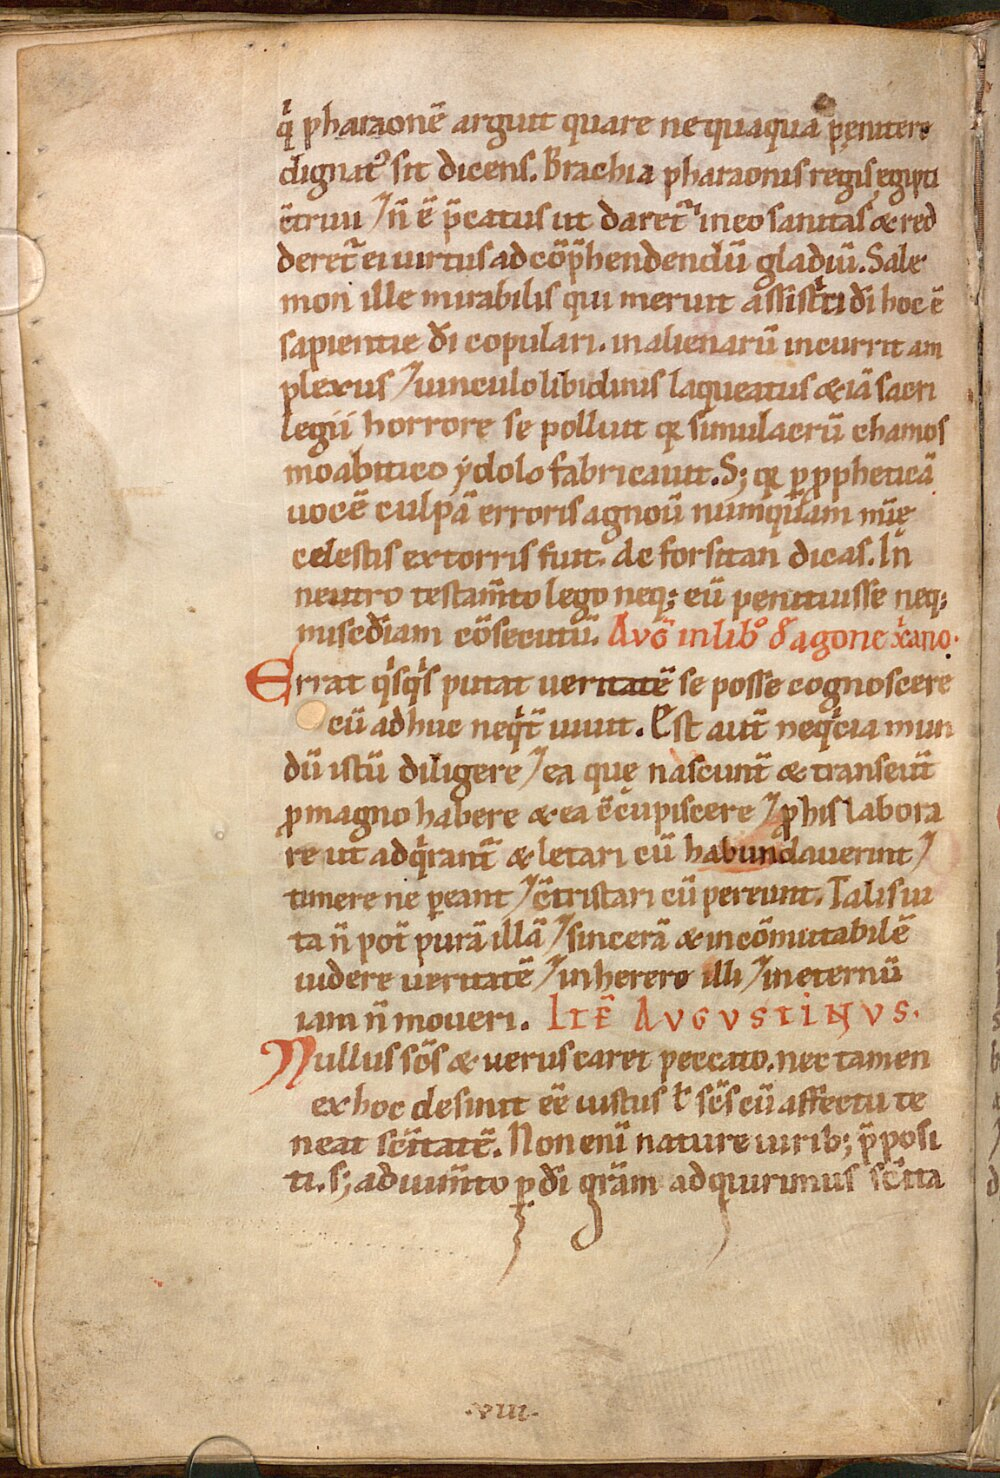 qͥ pharaonē arguit quare nequaquā pęnitere
dignat᷒ sit dicens. Brachia pharaonis regis ęgipti
c̄triui / n̄ ē p̄catus ut daret᷒ in eo sanitas & red
deret᷒ ei uirtus ad cōp̄hendendū gladiū. Salo
mon ille mirabilis qui meruit assistͥci dī hoc ē
sapientie dī copulari. in alienarū incurrit am
plexus / uinculo libidinis laqueatus & iā sacri
legii horrore se polluit qꝫ simulacrū chamos
moabitico ydolo fabricauit. S; qꝫ ꝑ ꝓpheticā
uocē culpā erroris agnoū numquam mīę
celestis extorris fuit. ac forsitan dicas. In̄
neutro testam̄to lego neq; eū penituisse neq;
misc̄diam cōsecutū. Avḡ in libº đ agone xͥano.
Errat qͥsqͥs putat ueritatē se posse cognoscere
cū adhuc neqͥt̄ uiuit. Est aut̄ neqͥcia mun
dū istū diligere / ea quę nascunt̄ & transeūt
ꝓ magno habere & ea c̄cupiscere / ꝓ his labora
re ut adqͥrant̄ & letari cū habundauerint /
timere ne ꝑeant / c̄tristari cū pereunt. Talis ui
ta n̄ pot̄ purā illā / sincerā & incōmutabilē
uidere ueritatē / inherere illi / in eternū
iam n̄ moueri. Itē Avgvstinvs.
Nullus sc̄s & uerus caret peccato. nec tamen
ex hoc desinit ēe iustus ł sc̄s cū affectu te
neat sc̄itatē. Non enī nature uirib; p̄posi
ti. s; adium̄to ꝑ dī gr̄am adquirimus sc̄ita
.viii.